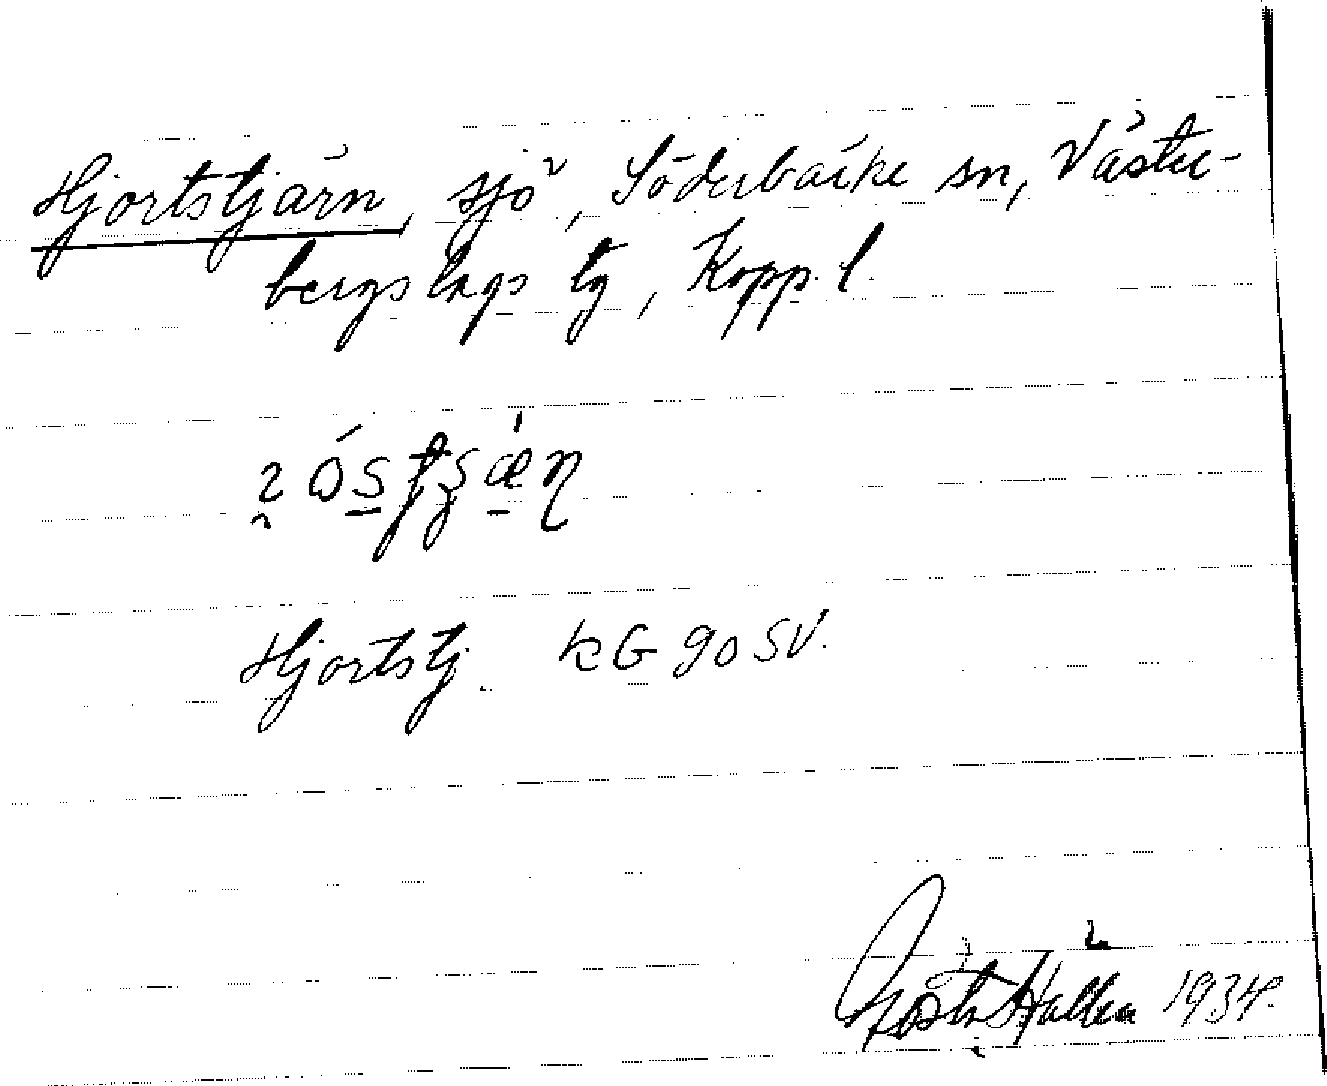 Hjortstjärn, sjö, Söderbärke sn, Väster-
bergslags tg, Kopp. l.
Hjortstj. kG 90 SV.
Gösta Hallén 1934.